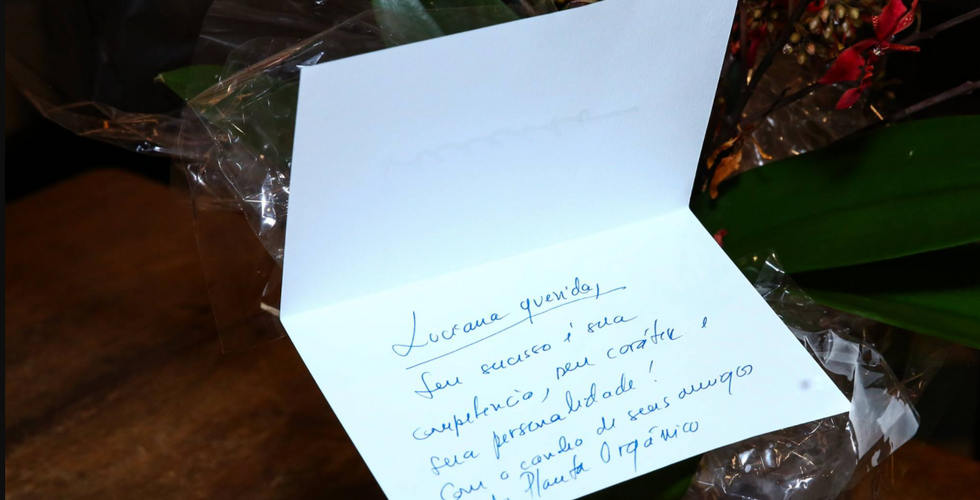 Luciana querida,
Seu sucesso é sua
competência, seu caráter e
sua personalidade!
Com o carinho de seus amigos
da Planta Orgânico